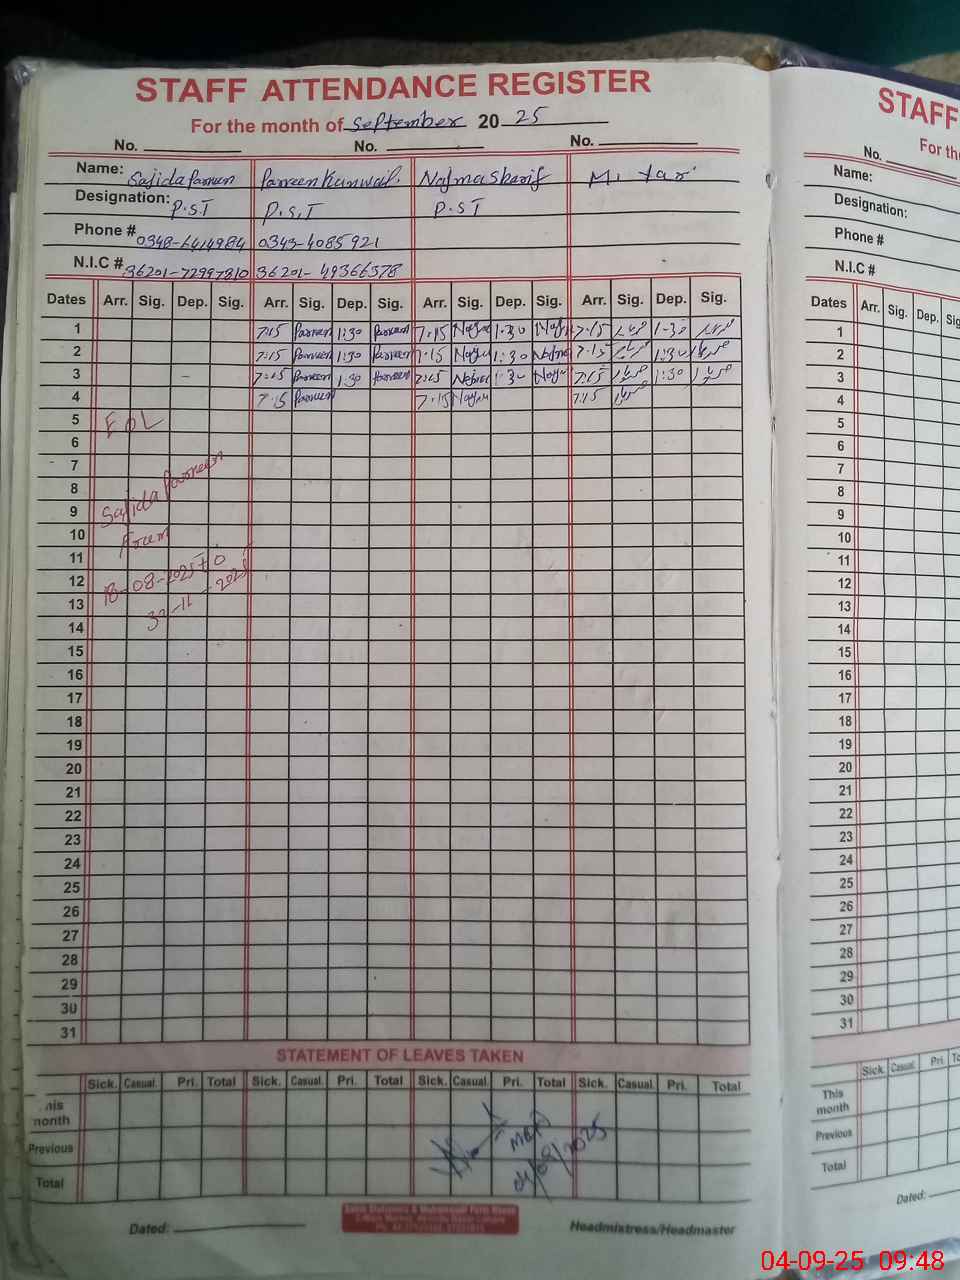 STAFF ATTENDANCE REGISTER
For the month of September 20 25
No. No. No.
Name: Sajida Parveen Parveen Kanwal. Najma Sharif M.
Designation: P.S.T P.S.T P.S.T
Phone # 0348-6414984 0343-4085921
N.I.C # 36201-72997810 36201-49366578
Dates Arr. Sig. Dep. Sig. Arr. Sig. Dep. Sig. Arr. Sig. Dep. Sig. Arr. Sig. Dep. Sig.
1 7:15 Parveen 1:30 Parveen 7:15 Najma 1:30 Najma 7:15 1-30
2 7:15 Parveen 1:30 Parveen 7:15 Najma 1:30 Najma 7:15 1:30
3 - 7:15 Parveen 1:30 Parveen 7:15 Najma 1:30 Najma 7:15 1:30
4 7:15 Parveen 7:15 Najma 7:15
5 EOL
6
7
8
9 Sajida Parveen
10 From
11
12 18-08-2025 to
13 -11-2025
14
15
16
17
18
19
20
21
22
23
24
25
26
27
28
29
30
31
STATEMENT OF LEAVES TAKEN
Sick. Casual. Pri. Total Sick. Casual. Pri. Total Sick. Casual. Pri. Total Sick. Casual. Pri. Total
month
Previous
Total
/2025
Dated: Headmistress/Headmaster
STAFF
For th
No.
Name:
Designation:
Phone #
N.I.C #
Dates Arr. Sig. Dep. Sig
1
2
3
4
5
6
7
8
9
10
11
12
13
14
15
16
17
18
19
20
21
22
23
24
25
26
27
28
29
30
31
Sick. Casual. Pri. To
This
month
Previous
Total
Dated:
04-09-25 09:48